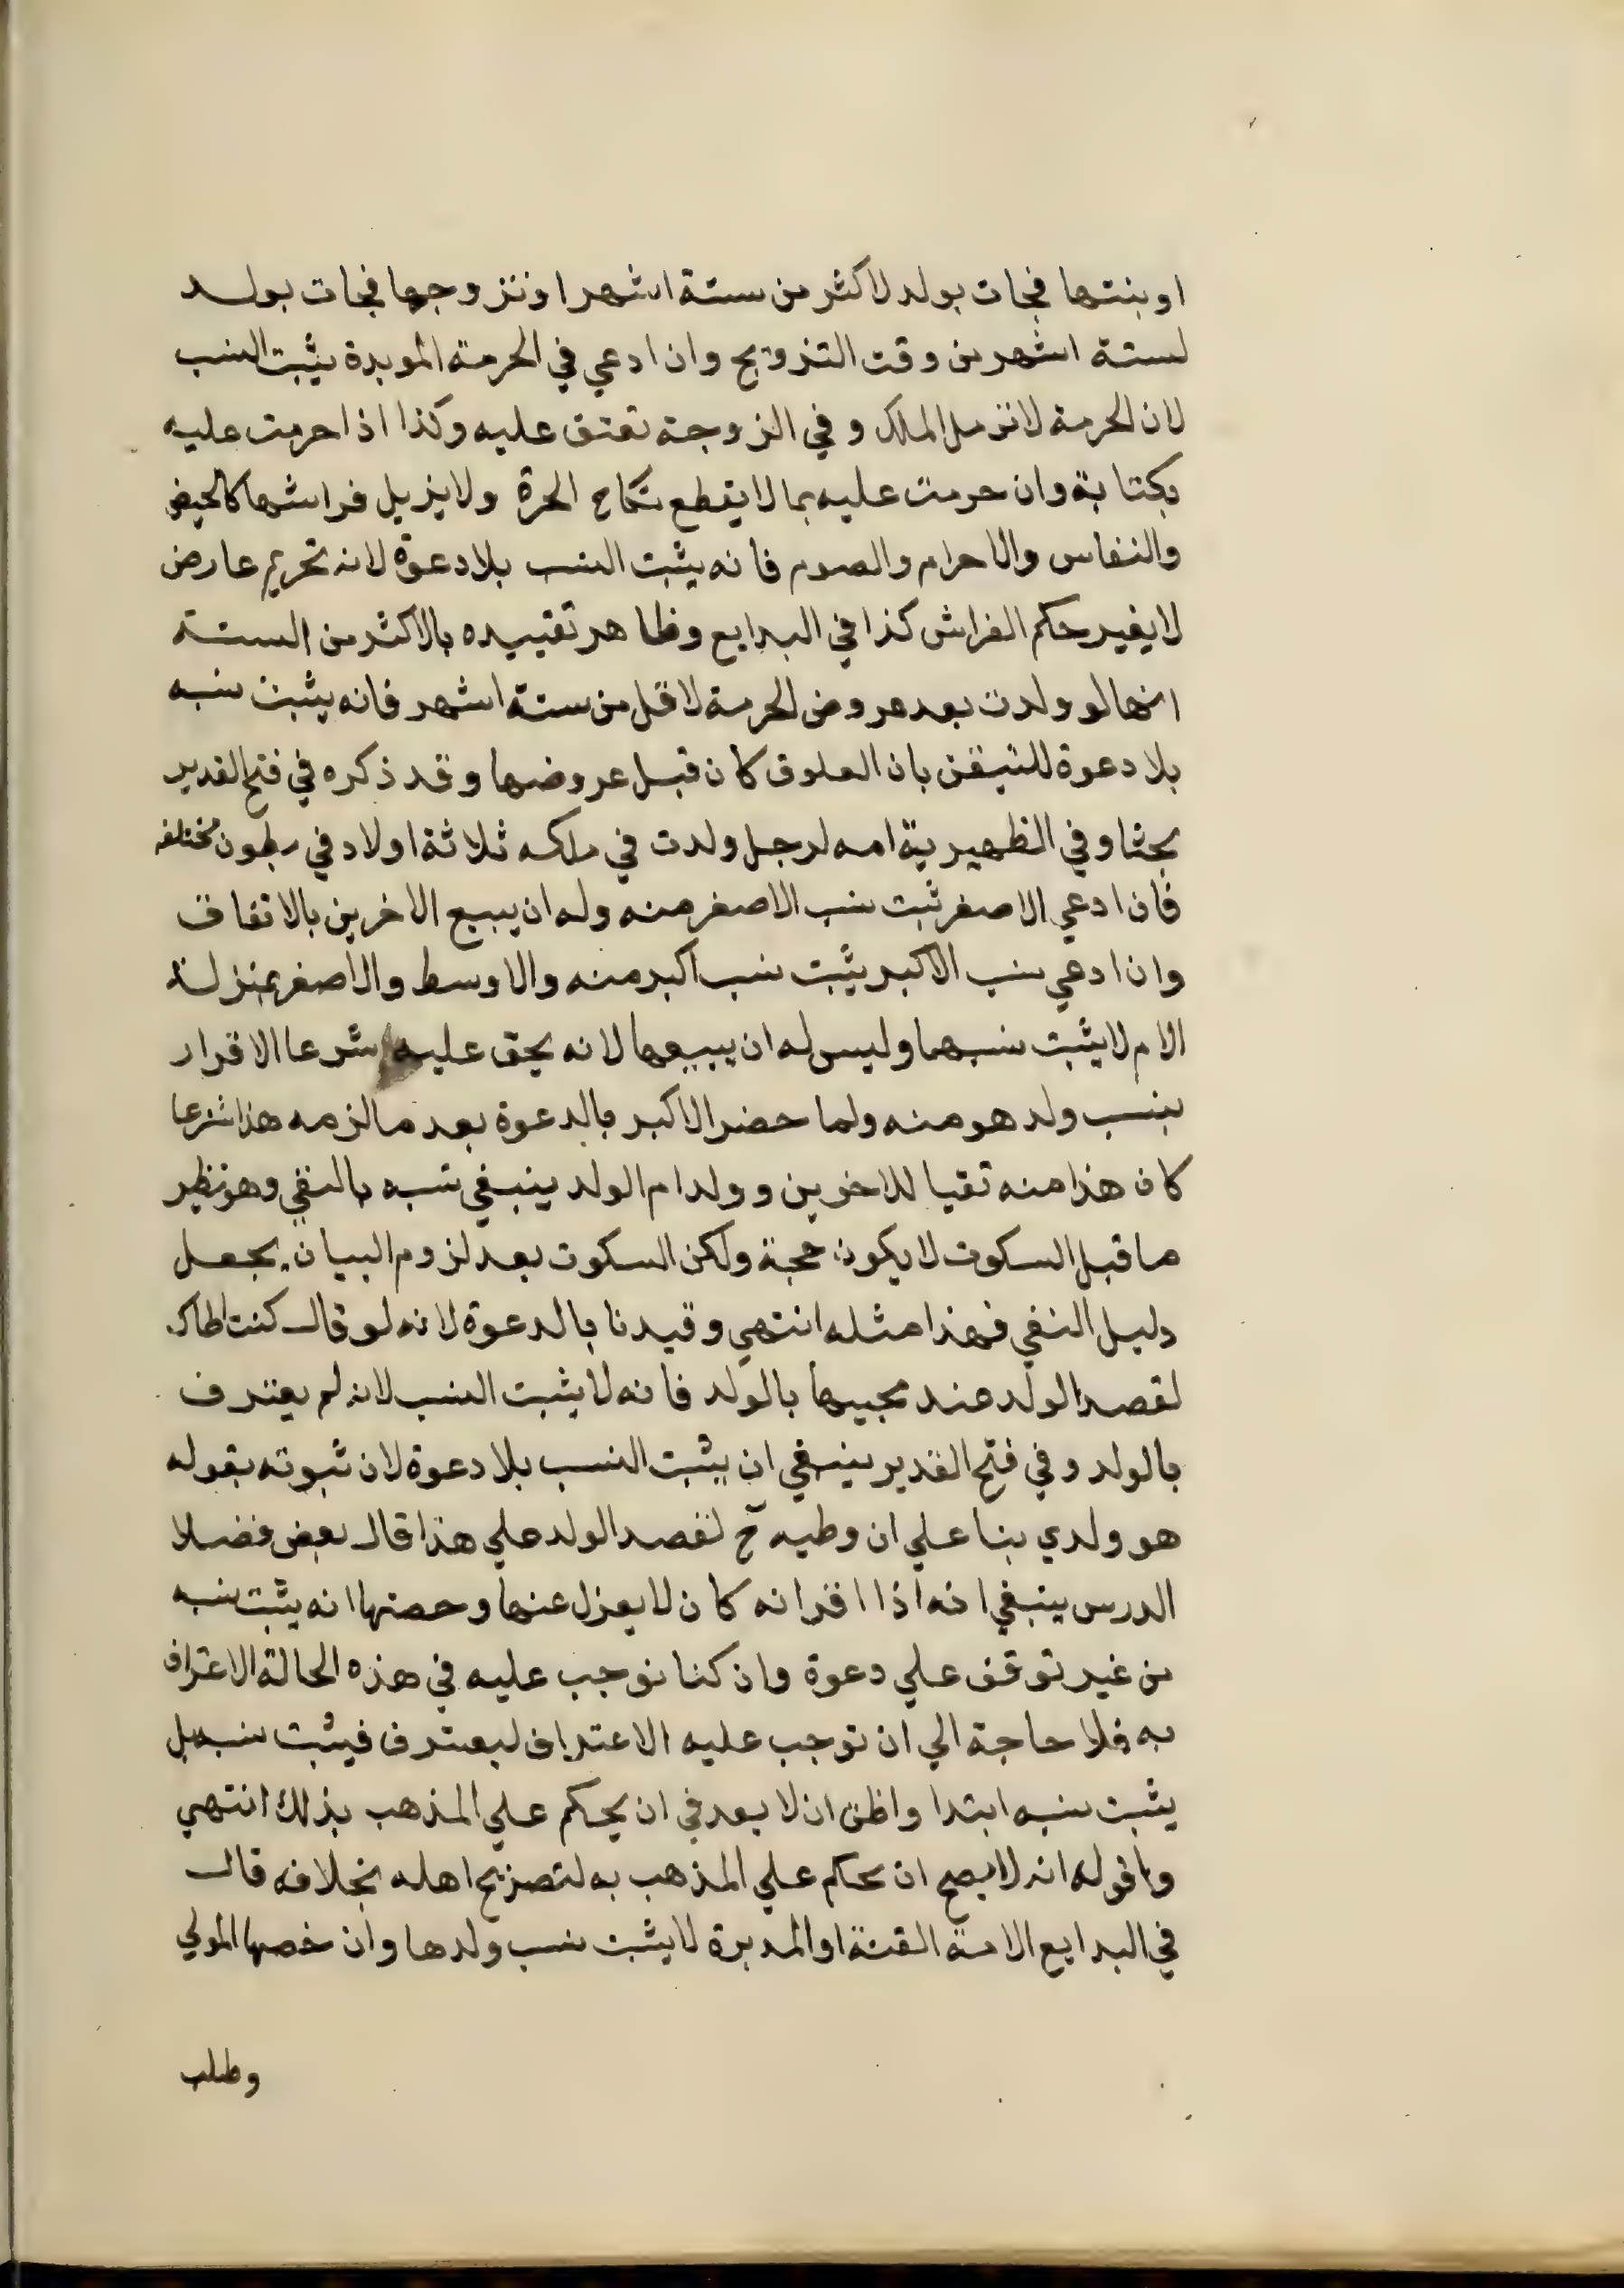 او بنتها فجات بولد لاكثر من ستة اشهر او تزوجها فجات بولد
لستة اشهر من وقت التزويج وان ادعي في الحرمة الموبدة يثبت النسب
لان الحرمة لا تزيل الملك و في الزوجة تعتق عليه وكذا اذا حرمت عليه
بكتابة وان حرمت عليه بما لا يقطع نكاح الحرة ولا يزيل فراشها كالحيض
والنفاس والاحرام والصوم فانه يثبت النسب بلا دعوة لانه تحريم عارض
لا يغير حكم الفراش كذا في البدايع وظاهر تقييده بالاكثر من الستة
انها لو ولدت بعد عروض الحرمة لاقل من ستة اشهر فانه يثبت نسبه
بلا دعوة للتيقن بان العلوق كان قبل عروضها وقد ذكره في فتح القدير
بحثا وفي الظهيرية امه لرجل ولدت في ملكه ثلاثة اولاد في بطون مختلفه
فان ادعي الاصغر ثبت نسب الاصغر منه وله ان يبيع الاخرين بالاتفاق
وان ادعي نسب الاكبر يثبت نسب اكبر منه والاوسط والاصغر بمنزلة
الام لا يثبت نسبهما وليس له ان يبيعها لانه يحق عليه شرعا الاقرار
بنسب ولد هو منه ولما حضر الاكبر بالدعوة بعد ما لزمه هذا شرعا
كان هذا منه تقيا للاخرين وولد ام الولد ينبغي نسبه بالنفي وهو نظير
ما قبل السكوت لا يكون حجة ولكن السكوت بعد لزوم البيان يجعل
دليل النفي فهذا مثله انتهي وقيدنا بالدعوة لانه لو قال كنت اطاك
لقصد الولد عند مجيها بالولد فانه لا يثبت النسب لانه لم يعترف
بالولد وفي فتح القدير ينبغي ان يثبت النسب بلا دعوة لان ثبوته بقوله
هو ولدي بنا علي ان وطيه ح لقصد الولد علي هذا قال بعض فضلا
الدرس ينبغي انه اذا اقر انه كان لا يعزل عنها وحصنها انه يثبت نسبه
من غير توقف علي دعوة وان كنا نوجب عليه في هذه الحالة الاعتراف
به فلا حاجة الي ان نوجب عليه الاعتراف ليعترف فيثبت نسبه بل
يثبت نسبه ابتدا واظن ان لا بعد في ان يحكم علي المذهب بذلك انتهي
واقوله انه لا يصح ان يحكم علي المذهب به لتصريح اهله بخلافه قال
في البدايع الامة القنة او المدبرة لا يثبت نسب ولدها وان حصنها المولي
وطلب